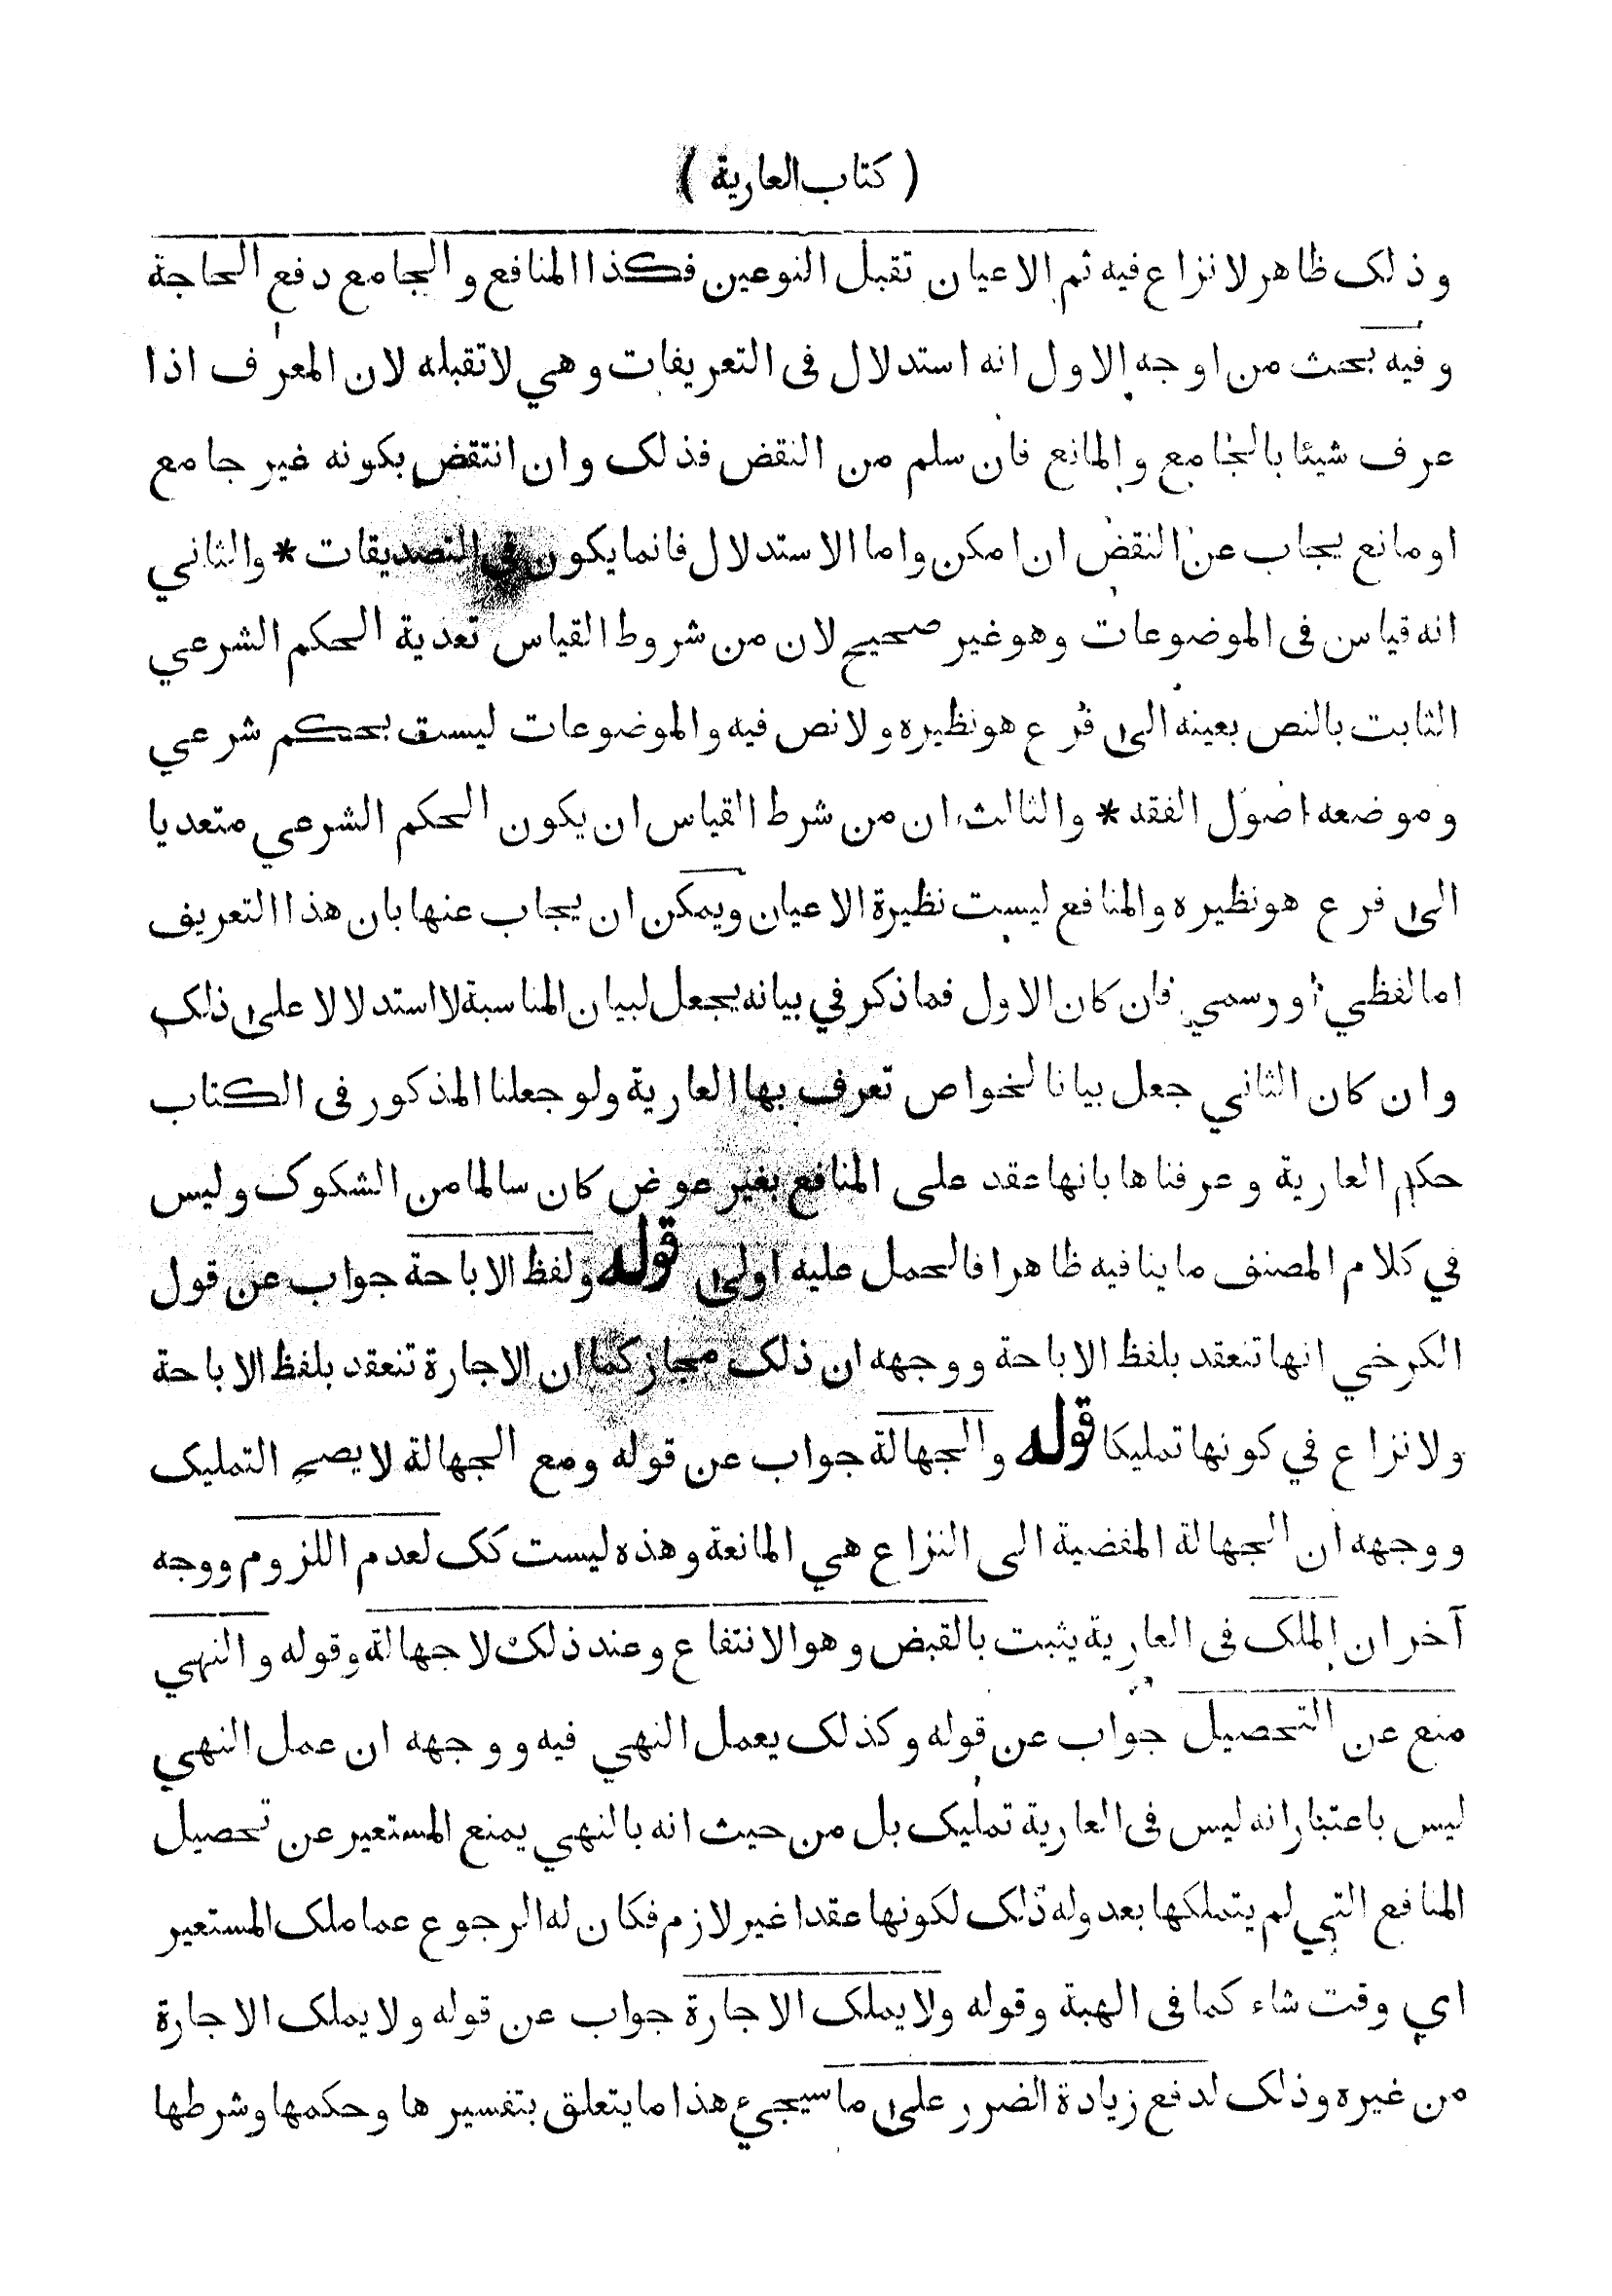 ( كتاب العارية )
وذلك ظاهر لا نزاع فيه ثم الاعيان تقبل النوعين فكذا المنافع والجامع دفع الحاجة
وفيه بحث من اوجه الاول انه استدلال فى التعريفات وهي لا تقبله لان المعرف اذا
عرف شيئا بالجامع والمانع فان سلم من النقض فذلك وان انتقض بكونه غير جامع
او مانع يجاب عن النقض ان امكن واما الاستدلال فانما يكون فى التصديقات * والثاني
انه قياس فى الموضوعات وهو غير صحيح لان من شروط القياس تعدية الحكم الشرعي
الثابت بالنص بعينه الى فرع هو نظيره ولا نص فيه والموضوعات ليست بحكم شرعي
وموضعه اصول الفقه * والثالث ان من شرط القياس ان يكون الحكم الشرعي متعديا
الى فرع هو نظيره والمنافع ليست نظيرة الاعيان ويمكن ان يجاب عنها بان هذا التعريف
اما لفظي او رسمي فان كان الاول فما ذكر في بيانه يجعل لبيان المناسبة لا استدلالا على ذلك
وان كان الثاني جعل بيانا لخواص تعرف بها العارية ولو جعلنا المذكور فى الكتاب
حكم العارية وعرفناها بانها عقد على المنافع بغير عوض كان سالما من الشكوك وليس
في كلام المصنف ما ينافيه ظاهرا فالحمل عليه اولى قوله ولفظ الاباحة جواب عن قول
الكرخي انها تنعقد بلفظ الاباحة ووجهه ان ذلك مجاز كما ان الاجارة تنعقد بلفظ الاباحة
ولا نزاع في كونها تمليكا قوله والجهالة جواب عن قوله ومع الجهالة لا يصح التمليك
ووجهه ان الجهالة المفضية الى النزاع هي المانعة وهذه ليست كك لعدم اللزوم ووجه
آخر ان الملك فى العارية يثبت بالقبض وهو الانتفاع وعند ذلك لا جهالة وقوله والنهي
منع عن التحصيل جواب عن قوله وكذلك يعمل النهي فيه ووجهه ان عمل النهي
ليس باعتبار انه ليس فى العارية تمليك بل من حيث انه بالنهي يمنع المستعير عن تحصيل
المنافع التي لم يتملكها بعد وله ذلك لكونها عقدا غير لازم فكان له الرجوع عما ملك المستعير
اي وقت شاء كما فى الهبة وقوله ولا يملك الاجارة جواب عن قوله ولا يملك الاجارة
من غيره وذلك لدفع زيادة الضرر على ما سيجيء هذا ما يتعلق بتفسيرها وحكمها وشرطها